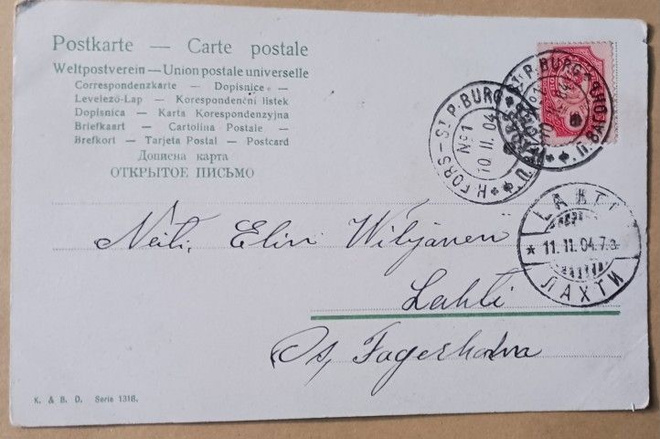 Postkarte — Carte postale
Weltpostverein — Union postale universelle
Correspondenzkarte — Dopisnice —
Levelező-Lap — Korespondenční listek
Dopisnica — Karta Korespondenzyjna
Briefkaart — Cartolina Postale —
Brefkort — Tarjeta Postal — Postcard
Дописна карта
ОТКРЫТОЕ ПИСЬМО
H:FORS–ST.P.BURG
№1
10 II. 04
LAHTI
* 11. II. 04. 7
ЛАХТИ
Neiti, Elin Wiljanen
Lahti
Os, Fagerholm
K. & B. D. Serie 1318.